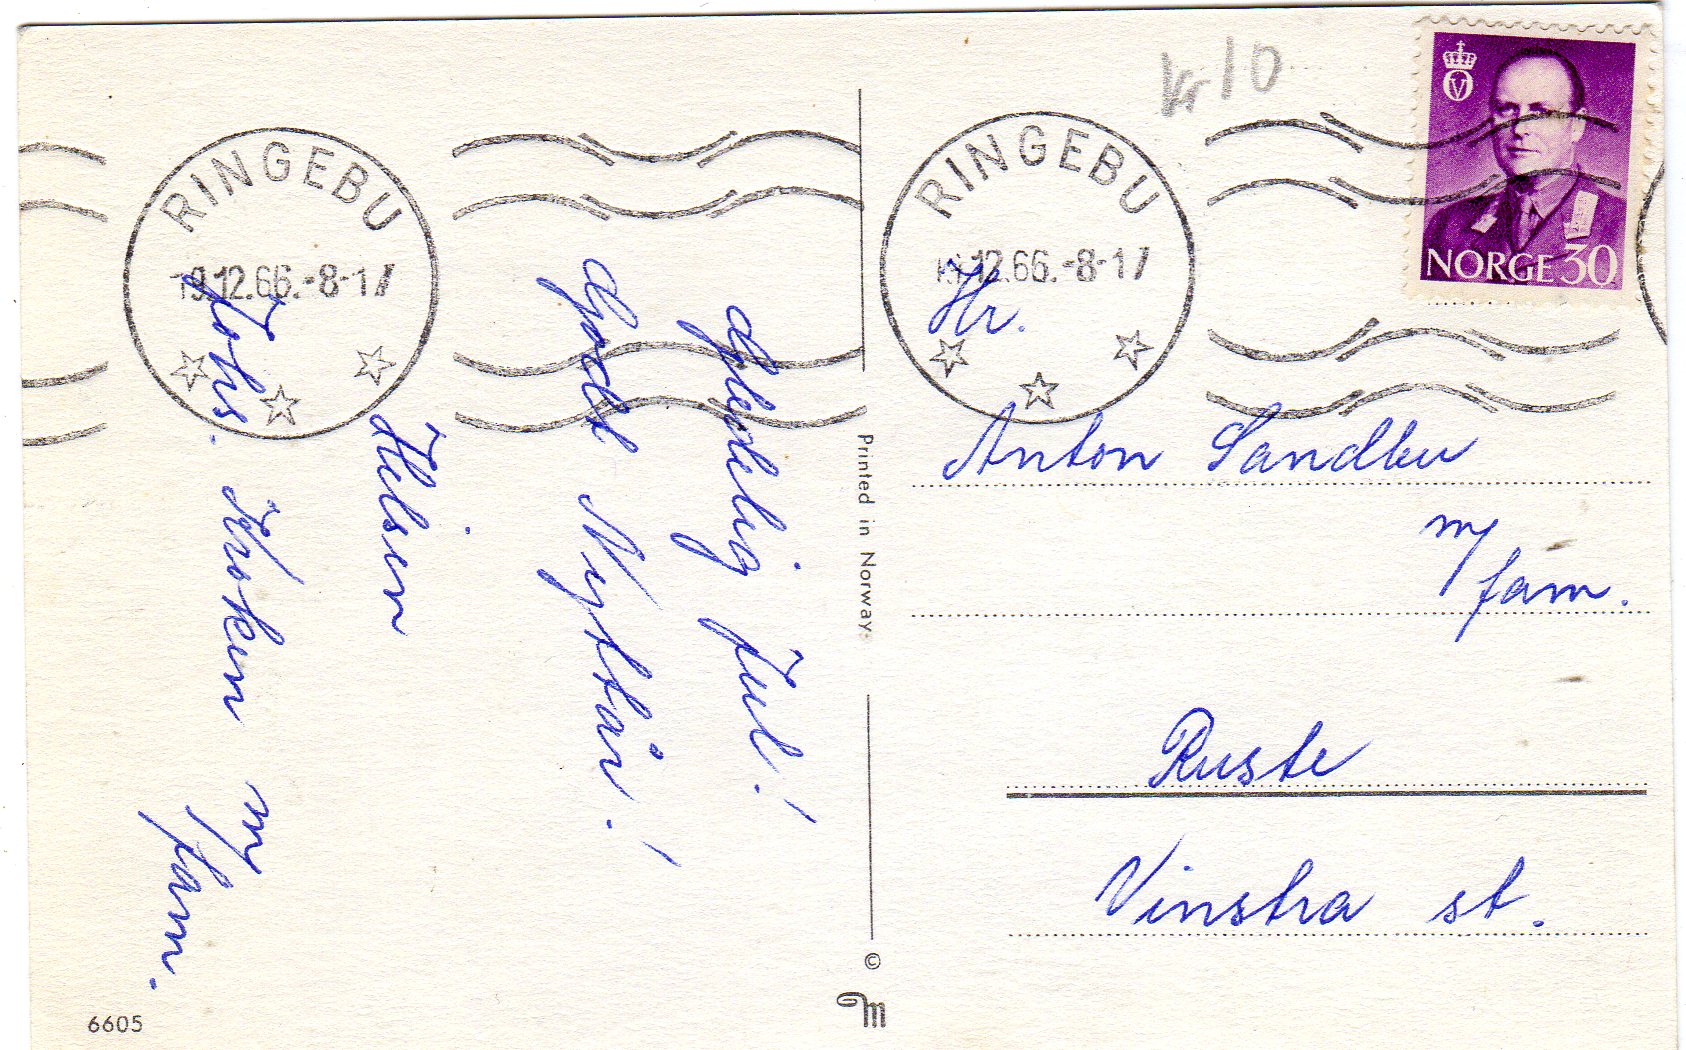 Gledelig Jul!
Godt Nyttår!
Hilsen
Johs. Kroken m/
fam.
6605
RINGEBU
19.12.66.-8-17
Printed in Norway.
©
kr 10
RINGEBU
12.66.-8-17
NORGE 30
Hr.
Anton Sandbu
m/
fam.
Ruste
Vinstra st.